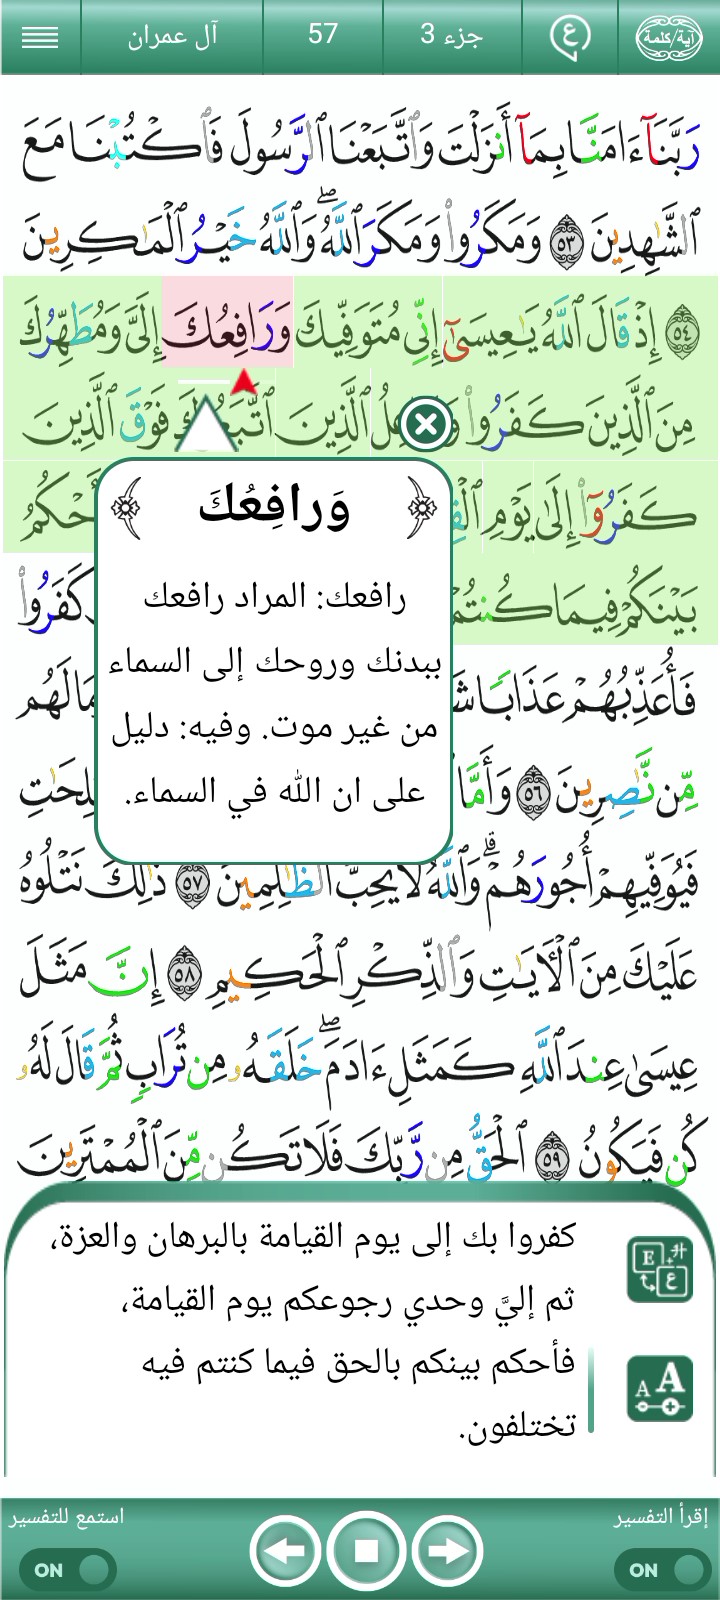 آية/كلمة
ع
جزء 3
57
آل عمران
رَبَّنَآ ءَامَنَّا بِمَآ أَنزَلْتَ وَٱتَّبَعْنَا ٱلرَّسُولَ فَٱكْتُبْنَا مَعَ
ٱلشَّٰهِدِينَ ٥٣ وَمَكَرُوا۟ وَمَكَرَ ٱللَّهُ ۖ وَٱللَّهُ خَيْرُ ٱلْمَٰكِرِينَ
٥٤ إِذْ قَالَ ٱللَّهُ يَٰعِيسَىٰٓ إِنِّى مُتَوَفِّيكَ وَرَافِعُكَ إِلَىَّ وَمُطَهِّرُكَ
مِنَ ٱلَّذِينَ كَفَرُوا۟ ٱلَّذِينَ ٱتَّبَعُوكَ فَوْقَ ٱلَّذِينَ
كَفَرُوٓا۟ إِلَىٰ يَوْمِ
وَرافِعُكَ
رافعك: المراد رافعك
ببدنك وروحك إلى السماء
من غير موت. وفيه: دليل
على ان الله في السماء.
بَيْنَكُمْ فِيمَا كُنتُمْ كَفَرُوا۟
فَأُعَذِّبُهُمْ عَذَابًا
مِّن نَّٰصِرِينَ ٥٦ وَأَمَّا
فَيُوَفِّيهِمْ أُجُورَهُمْ ۗ وَٱللَّهُ لَا يُحِبُّ ٱلظَّٰلِمِينَ ٥٧ ذَٰلِكَ نَتْلُوهُ
عَلَيْكَ مِنَ ٱلْءَايَٰتِ وَٱلذِّكْرِ ٱلْحَكِيمِ ٥٨ إِنَّ مَثَلَ
عِيسَىٰ عِندَ ٱللَّهِ كَمَثَلِ ءَادَمَ ۖ خَلَقَهُۥ مِن تُرَابٍ ثُمَّ قَالَ لَهُۥ
كُن فَيَكُونُ ٥٩ ٱلْحَقُّ مِن رَّبِّكَ فَلَا تَكُن مِّنَ ٱلْمُمْتَرِينَ
كفروا بك إلى يوم القيامة بالبرهان والعزة،
ثم إليَّ وحدي رجوعكم يوم القيامة،
فأحكم بينكم بالحق فيما كنتم فيه
تختلفون.
إقرأ التفسير
استمع للتفسير
ON
ON